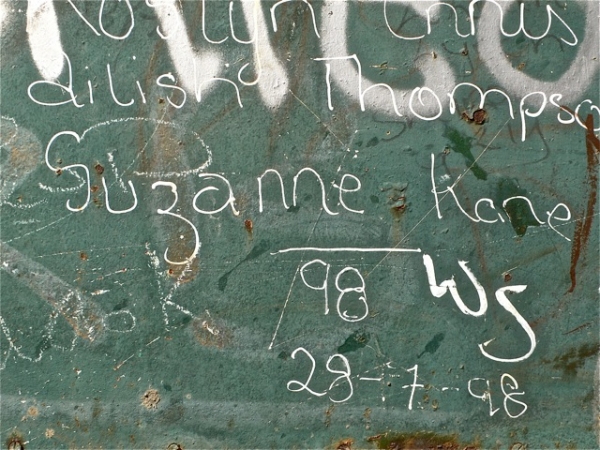 Roslyn Ennis
ailish Thompso
Suzanne Kane
98 WS
28-7-98